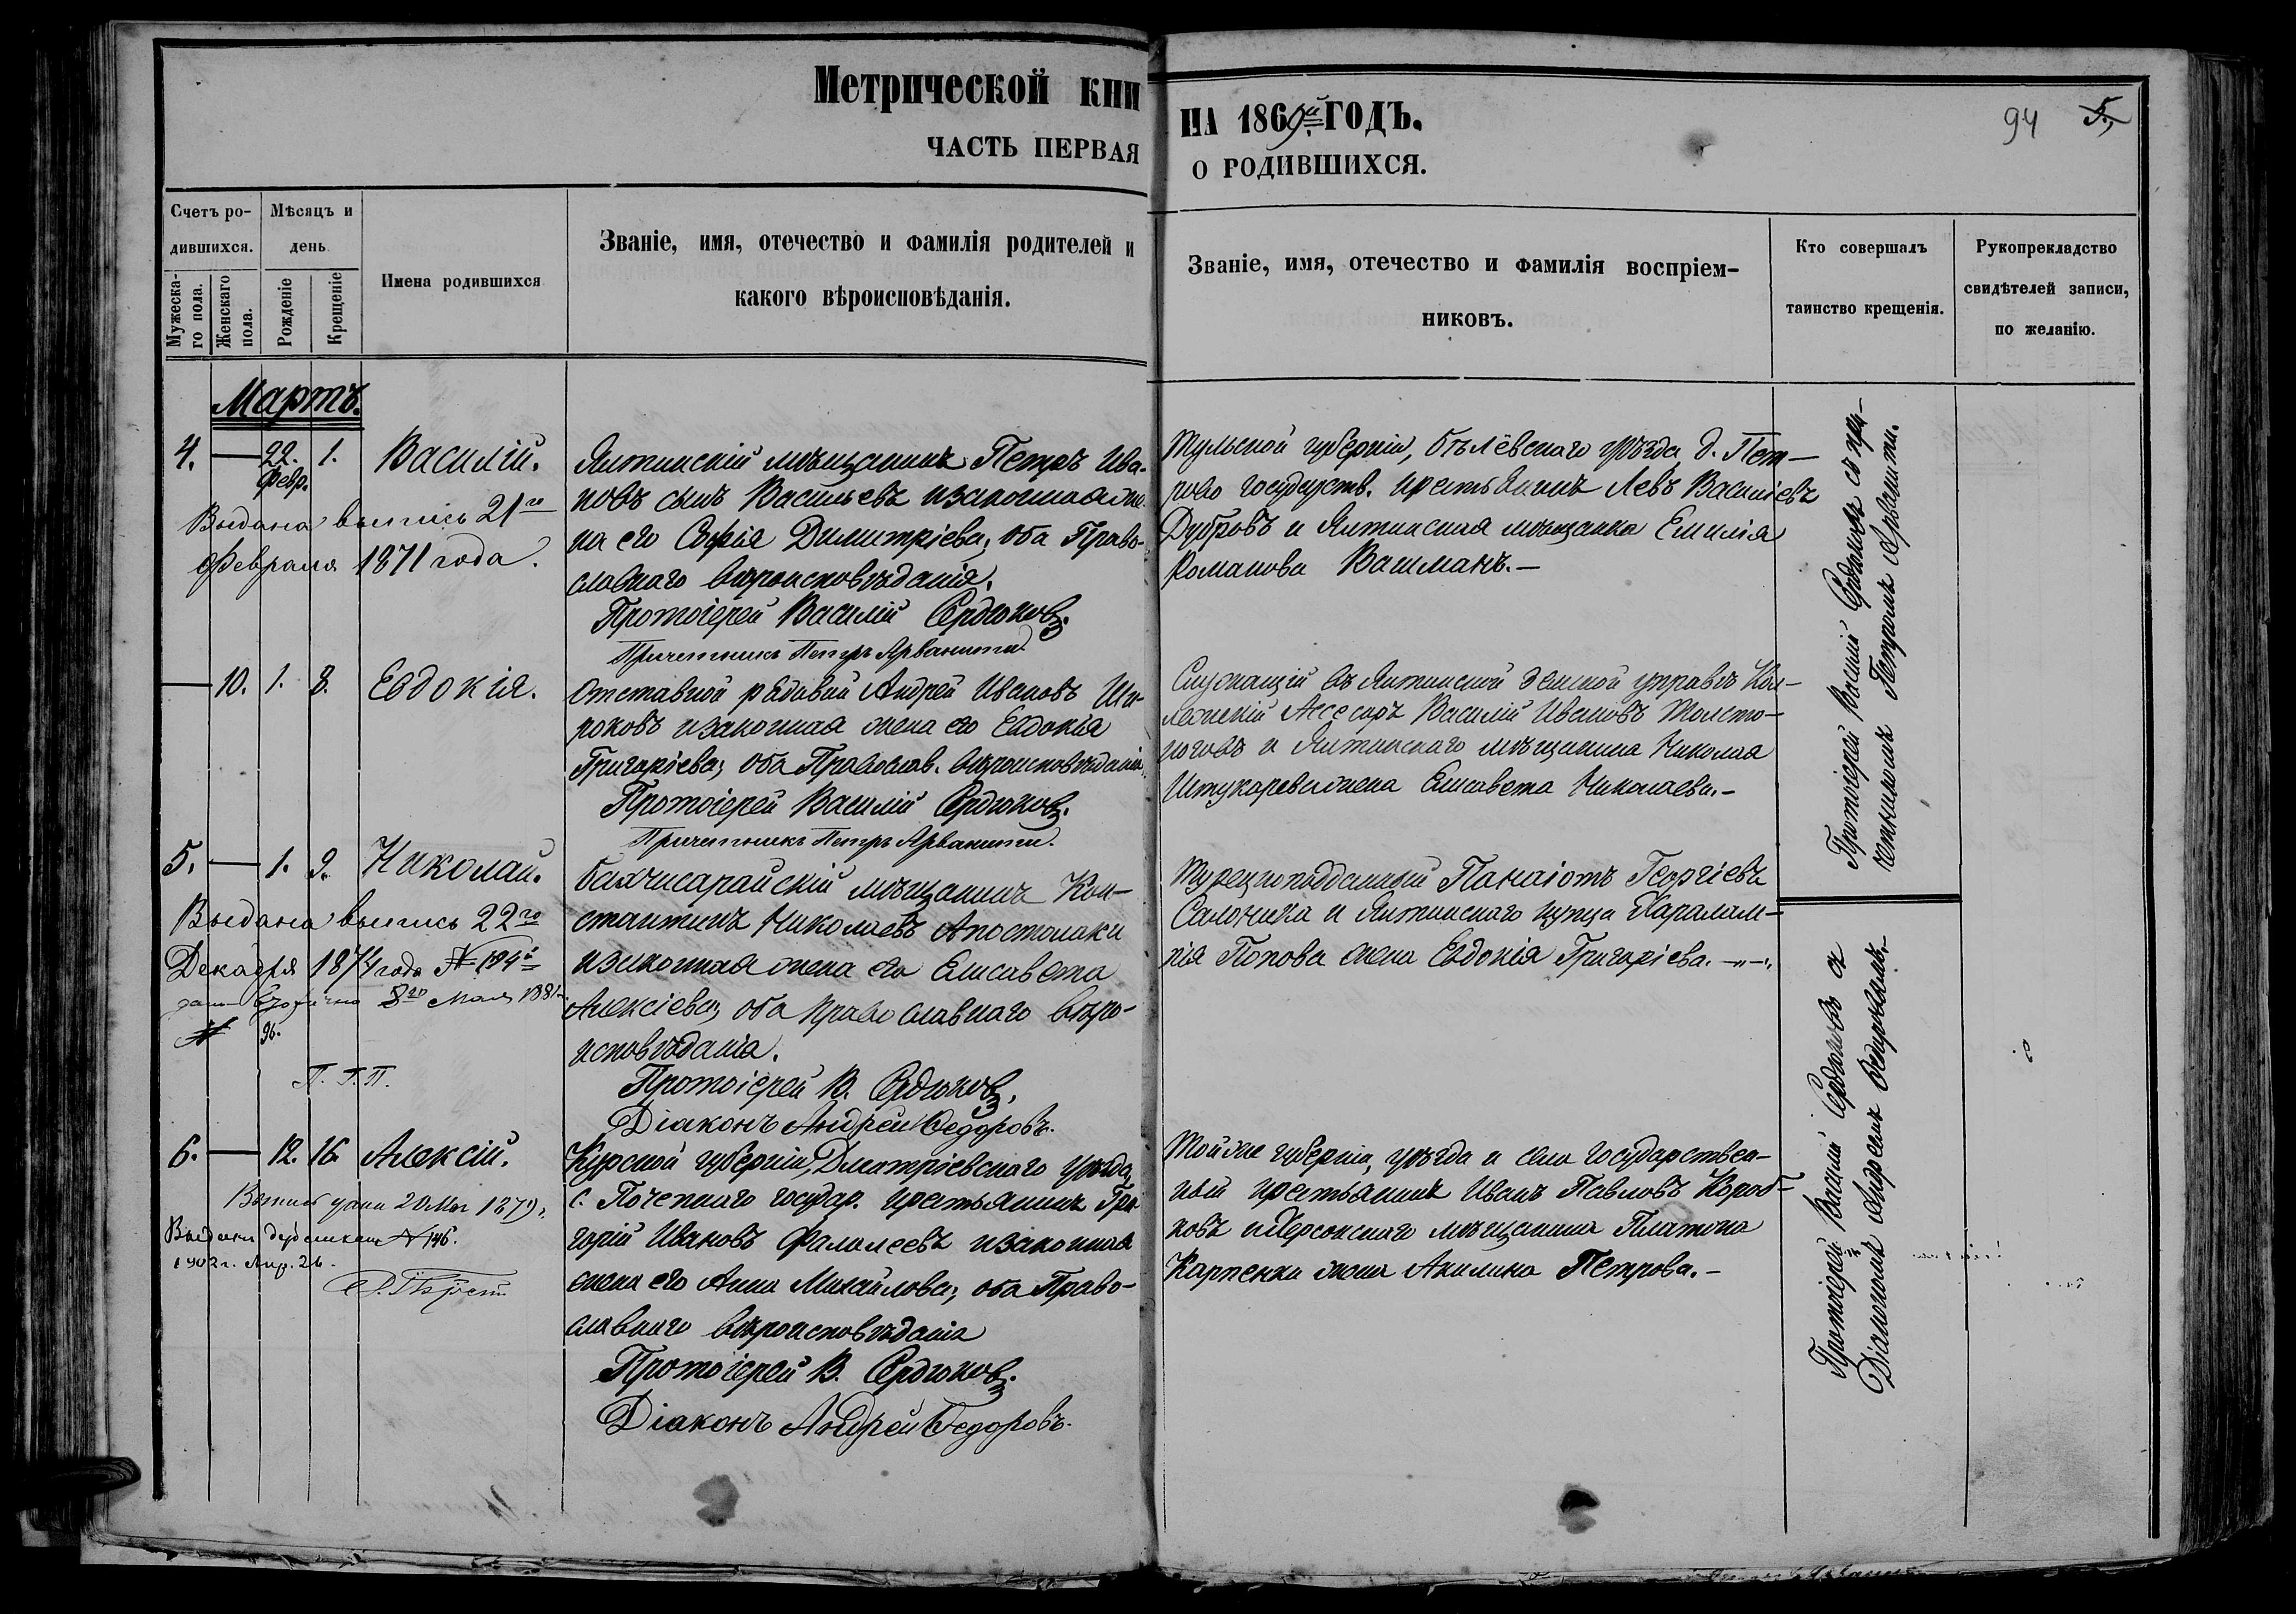 Метрической кни
ЧАСТЬ ПЕРВАЯ
НА 1869й ГОДЪ.
О РОДИВШИХСЯ.
94 5.
Счетъ ро-
дившихся.
Мужеска-
го пола.
Женскаго
пола.
Мѣсяцъ и
день
Рожденіе
Крещеніе
Имена родившихся
Званіе, имя, отечество и фамилія родителей и
какого вѣроисповѣданія.
Званіе, имя, отечество и фамилія воспріем-
никовъ.
Кто совершалъ
таинство крещенія.
Рукоприкладство
свидѣтелей записи,
по желанію.
Мартъ.
4. — 22. 1. Василій.
Февр.
Выдана выпись 21го
Февраля 1871 года.
Ялтинскій мѣщанинъ Петръ Ива-
новъ сынъ Васильевъ и законная же-
на его Софія Димитріева, оба Право-
славнаго вѣроисповѣданія.
Протоіерей Василій Сердюковъ.
Причетникъ Петръ Арванити.
Тульской губерніи, бѣлёвскаго уѣзда д. Пет-
рово государств. крестьянинъ Левъ Василіевъ
Дубровъ и Ялтинская мѣщанка Емилія
Романова Вашманъ.—
— 10. 1. 8. Евдокія.
Отставной рядовой Андрей Ивановъ Ши-
роковъ и законная жена его Евдокія
Григоріева, оба Православ. вѣроисповѣданія.
Протоіерей Василій Сердюковъ.
Причетникъ Петръ Арванити.
Служащій въ Ялтинской земской управѣ Кол-
лежскій Ассесоръ Василій Ивановъ Толсто-
ноговъ и Ялтинскаго мѣщанина Николая
Штукарева жена Елисавета Николаева.—
Протоіерей Василій Сердюковъ съ при-
четникомъ Петромъ Арванити.
5. — 1. 9. Николай.
Выдана выпись 22го
Декабря 1874 года № 184й
8го Мая 1881
№ 96.
П. Г. П.
бахчисарайскій мѣщанинъ Кон-
стантинъ Николаевъ Апостолаки
и законная жена его Елисавета
Алексіева, оба православнаго вѣро-
исповѣданія.
Протоіерей В. Сердюковъ.
Діаконъ Андрей Федоровъ.
Турецкоподданный Панаіотъ Георгіевъ
Салоника и Ялтинскаго купца Харалам-
пія Попова жена Евдокія Григоріева. —"—
6. — 12. 16. Алексій.
Выпись дана 20 1879
Выданъ дубликатъ № 146.
1902 г. Апр. 26.
Курской губерніи, Дмитріевскаго уѣзда,
с. Почепнаго государ. крестьянинъ Гри-
горій Ивановъ Фалалеевъ и законная
жена его Анна Михайлова, оба Право-
славнаго вѣроисповѣданія
Протоіерей В. Сердюковъ.
Діаконъ Андрей Федоровъ.
Той же губерніи, уѣзда и села государствен-
ный крестьянинъ Иванъ Павловъ Короб-
ковъ и Херсонскаго мѣщанина Платона
Карпенки жена Акилина Петрова.—
Протоіерей Василій Сердюковъ съ
Діакономъ Андреемъ Федоровымъ.